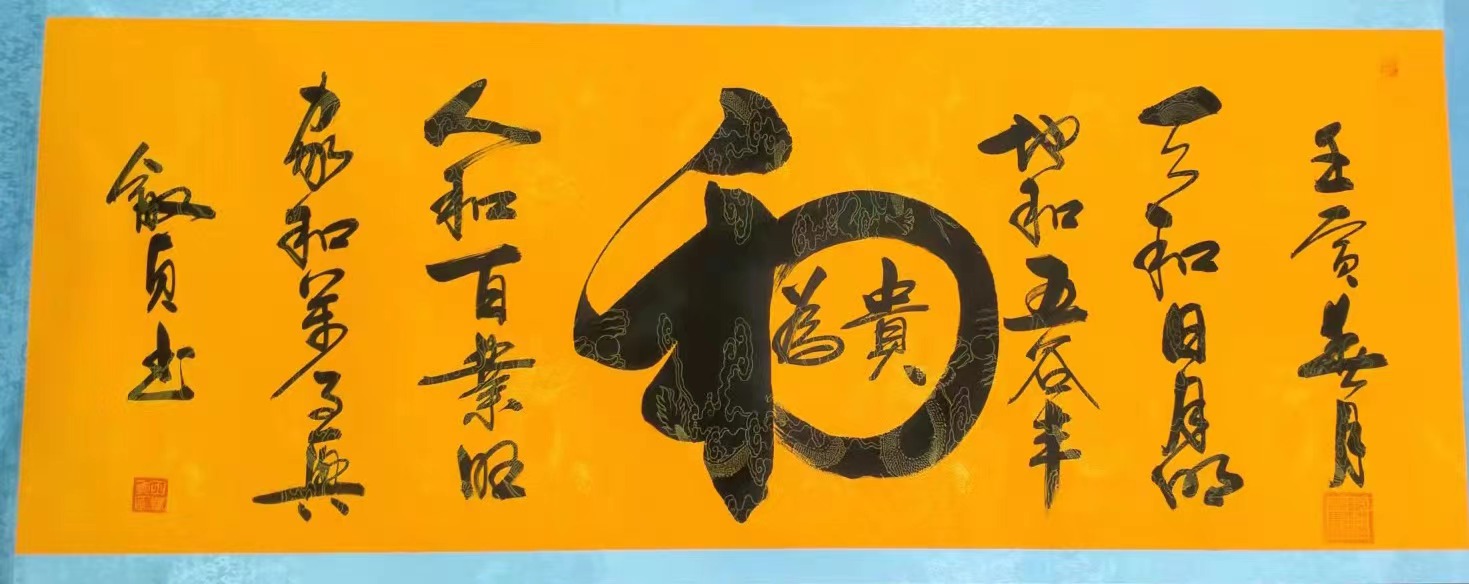 壬寅春月
天和日月明
地和五谷丰
和
為貴
人和百業昭
家和萬事興
叙貞书